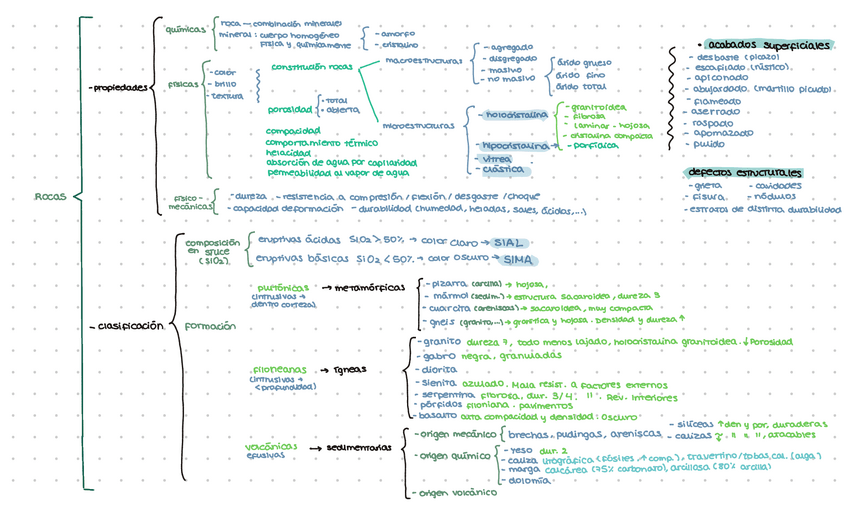 ROCAS
- propiedades
químicas
roca — combinación minerales
mineral: cuerpo homogéneo
física y químicamente
- amorfo
- cristalino
físicas
- color
- brillo
- textura
constitución rocas
macroestructuras
- agregado
- disgregado
- masivo
- no masivo
árido grueso
árido fino
árido total
porosidad
- total
- abierta
microestructuras
- holocristalina
- granitoidea
- fibrosa
- laminar - hojosa
- cristalina compacta
- hipocristalina → - porfídica
- vítrea
- clástica
compacidad
comportamiento térmico
heladicidad
absorción de agua por capilaridad
permeabilidad al vapor de agua
físico-
mecánicas
- dureza - resistencia a compresión / flexión / desgaste / choque
- capacidad deformación - durabilidad (humedad, heladas, sales, ácidos,...)
• acabados superficiales
- desbaste (picazo)
- escafilado (rústico)
- apiconado
- abujardado (martillo picudo)
- flameado
- aserrado
- raspado
- apomazado
- pulido
defectos estructurales
- grieta - cavidades
- fisura - nódulos
- estratos de distinta durabilidad
- clasificación
composición
en sílice
(SiO₂)
eruptivas ácidas SiO₂ > 50% → color claro → SIAL
eruptivas básicas SiO₂ < 50% → color oscuro → SIMA
formación
plutónicas → metamórficas
(intrusivas →
dentro corteza)
- pizarra (arcilla) → hojosa,
- mármol (sedim.) → estructura sacaroidea, dureza 3
- cuarcita (areniscas) → sacaroidea, muy compacta
- gneis (granito,...) → granítica y hojosa. Densidad y dureza ↑
filoneanas → ígneas
(intrusivas →
< profundidad)
- granito dureza 7, todo menos lajado, holocristalina granitoidea. ↓ Porosidad
- gabro negra, granulados
- diorita
- sienita azulado. Mala resist. a factores externos
- serpentina fibrosa, dur. 3/4. " . Rev. interiores
- pórfidos filoniana. pavimentos
- basalto alta compacidad y densidad: oscuro
volcánicas → sedimentarias
efusivas
- origen mecánico
brechas, pudingas, areniscas
- silíceas ↑ den y por, duraderas
- calizas " " ", atacables
- origen químico
- yeso dur. 2
- caliza litográfica (fósiles, ↑ comp.), travertino/tobas, cal. (alga)
- marga calcárea (75% carbonato), arcillosa (80% arcilla)
- dolomía
- origen volcánico